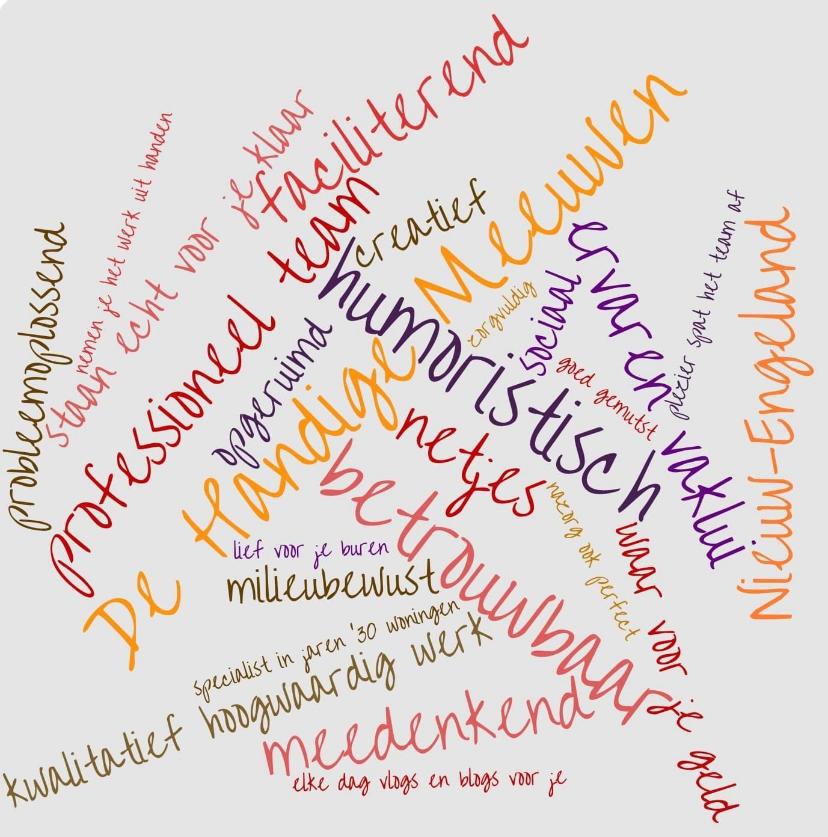 faciliterend
staan echt voor je klaar
nemen je het werk uit handen
probleemoplossend
Professioneel team
creatief
De Handige Meeuwen
humoristisch
zorgvuldig
sociaal
ervaren vaklui
plezier spat het team af
Nieuw-Engeland
opgeruimd
goed gemutst
netjes
betrouwbaar
nazorg ook perfect
waar voor je geld
lief voor je buren
milieubewust
specialist in jaren '30 woningen
kwalitatief hoogwaardig werk
meedenkend
elke dag vlogs en blogs voor je